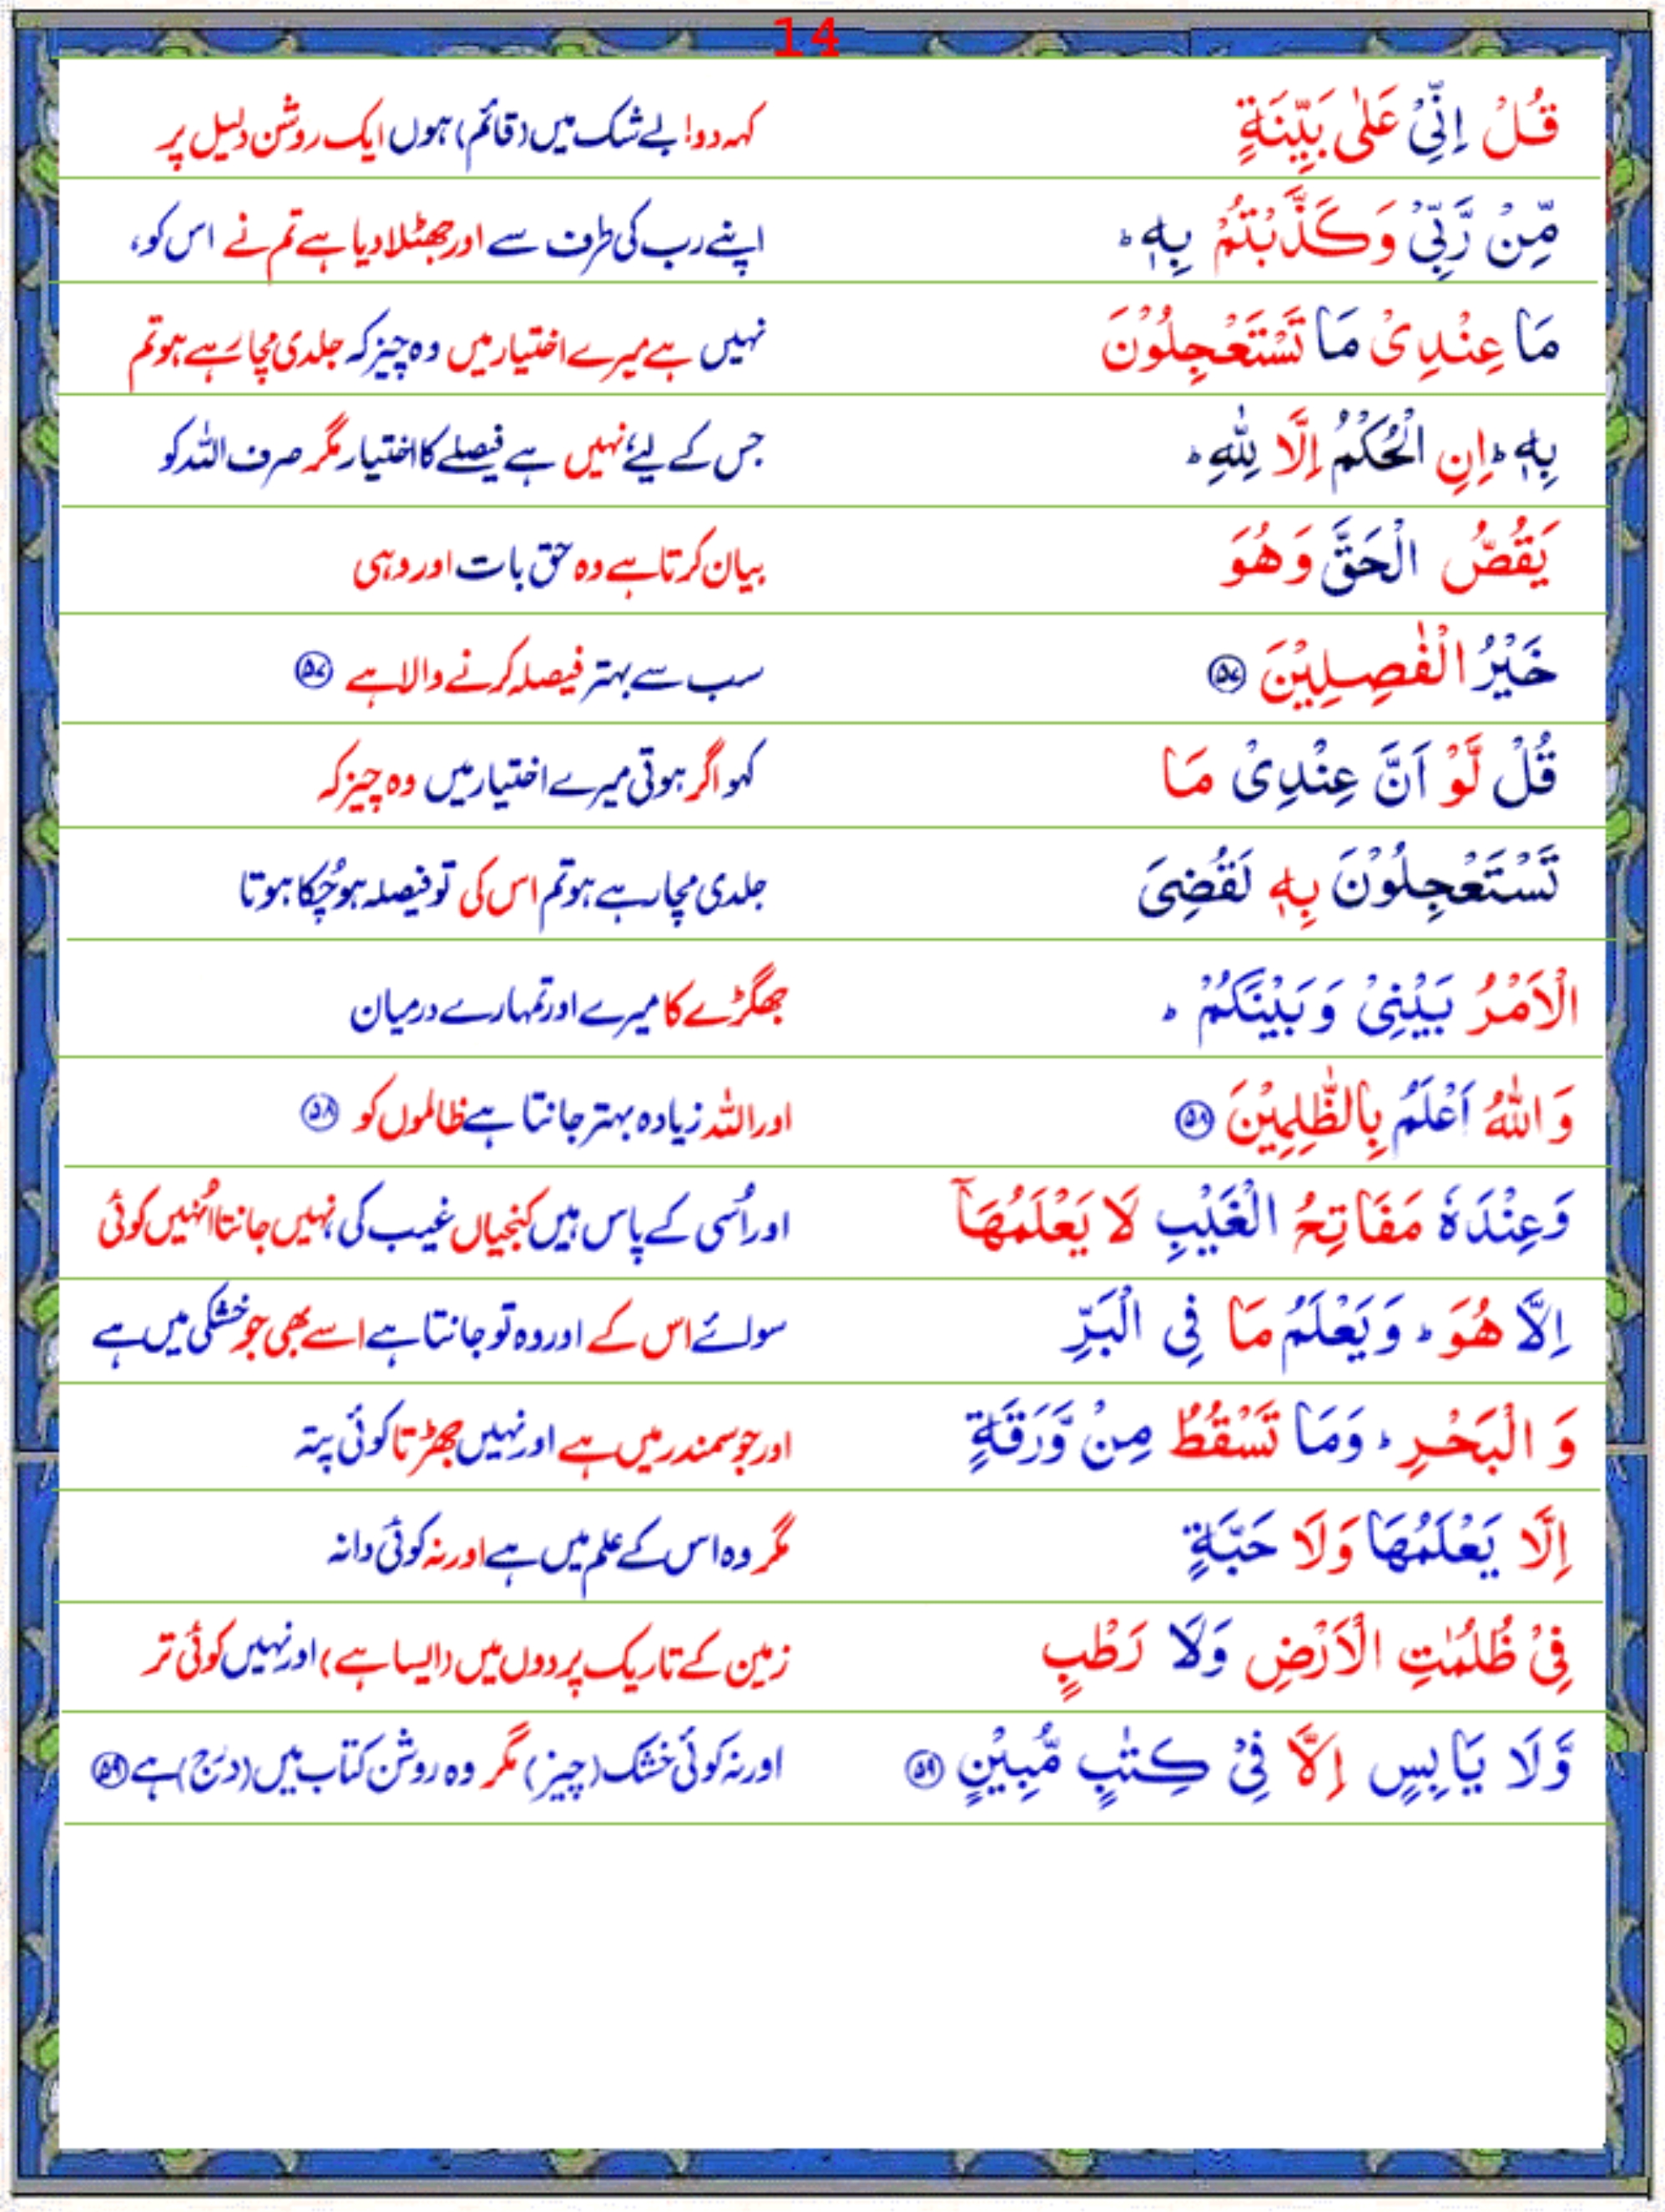 14
قُلْ اِنِّیْ عَلٰی بَیِّنَةٍ کہہ دو! بے شک میں (قائم) ہوں ایک روشن دلیل پر
مِّنْ رَّبِّیْ وَکَذَّبْتُمْ بِهٖ ؕ اپنے رب کی طرف سے اور جھٹلا دیا ہے تم نے اس کو،
مَا عِنْدِیْ مَا تَسْتَعْجِلُوْنَ نہیں ہے میرے اختیار میں وہ چیز کہ جلدی مچا رہے ہو تم
بِهٖ ؕ اِنِ الْحُکْمُ اِلَّا لِلّٰهِ ؕ جس کے لیے نہیں ہے فیصلے کا اختیار مگر صرف اللہ کو
یَقُصُّ الْحَقَّ وَهُوَ بیان کرتا ہے وہ حق بات اور وہی
خَیْرُ الْفٰصِلِیْنَ ۵۷ سب سے بہتر فیصلہ کرنے والا ہے ۵۷
قُلْ لَّوْ اَنَّ عِنْدِیْ مَا کہو اگر ہوتی میرے اختیار میں وہ چیز کہ
تَسْتَعْجِلُوْنَ بِهٖ لَقُضِیَ جلدی مچا رہے ہو تم اس کی تو فیصلہ ہو چُکا ہوتا
الْاَمْرُ بَیْنِیْ وَبَیْنَکُمْ ؕ جھگڑے کا میرے اور تمہارے درمیان
وَاللّٰهُ اَعْلَمُ بِالظّٰلِمِیْنَ ۵۸ اور اللہ زیادہ بہتر جانتا ہے ظالموں کو ۵۸
وَعِنْدَهٗ مَفَاتِحُ الْغَیْبِ لَا یَعْلَمُهَاۤ اور اُسی کے پاس ہیں کنجیاں غیب کی نہیں جانتا اُنہیں کوئی
اِلَّا هُوَ ؕ وَیَعْلَمُ مَا فِی الْبَرِّ سوائے اس کے اور وہ تو جانتا ہے اسے بھی جو خشکی میں ہے
وَالْبَحْرِ ؕ وَمَا تَسْقُطُ مِنْ وَّرَقَةٍ اور جو سمندر میں ہے اور نہیں جھڑتا کوئی پتہ
اِلَّا یَعْلَمُهَا وَلَا حَبَّةٍ مگر وہ اس کے علم میں ہے اور نہ کوئی دانہ
فِیْ ظُلُمٰتِ الْاَرْضِ وَلَا رَطْبٍ زمین کے تاریک پردوں میں (ایسا ہے) اور نہیں کوئی تر
وَّلَا یَابِسٍ اِلَّا فِیْ کِتٰبٍ مُّبِیْنٍ ۵۹ اور نہ کوئی خشک (چیز) مگر وہ روشن کتاب میں (درج) ہے ۵۹